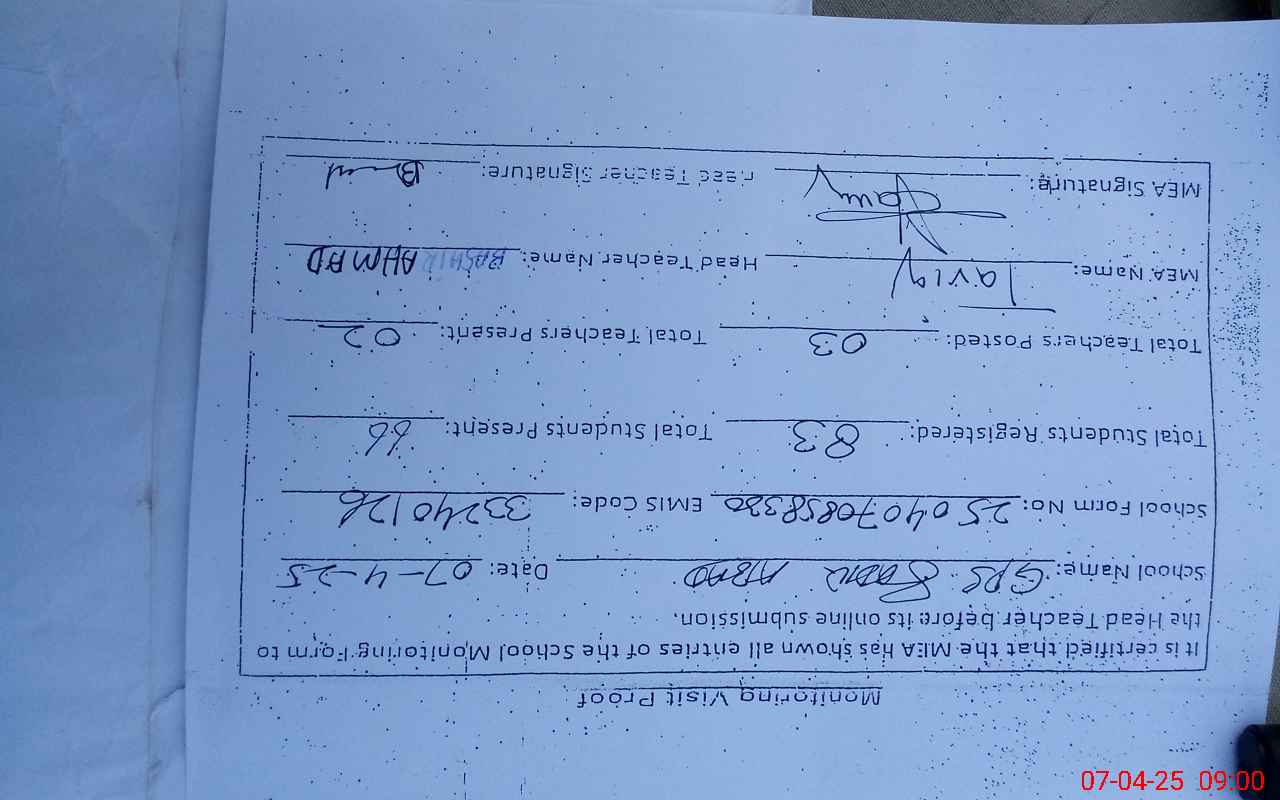 Monitoring Visit Proof
It is certified that the MEA has shown all entries of the School Monitoring Form to
the Head Teacher before its online submission.
School Name: GPS ABAD Date: 07-4-25
School Form No: 2504070858330 EMIS Code: 33240126
Total Students Registered: 83 Total Students Present: 66
Total Teachers Posted: 03 Total Teachers Present: 02
MEA Name: Tariq Head Teacher Name: BASHIR AHMAD
MEA Signature: Head Teacher Signature:
07-04-25 09:00